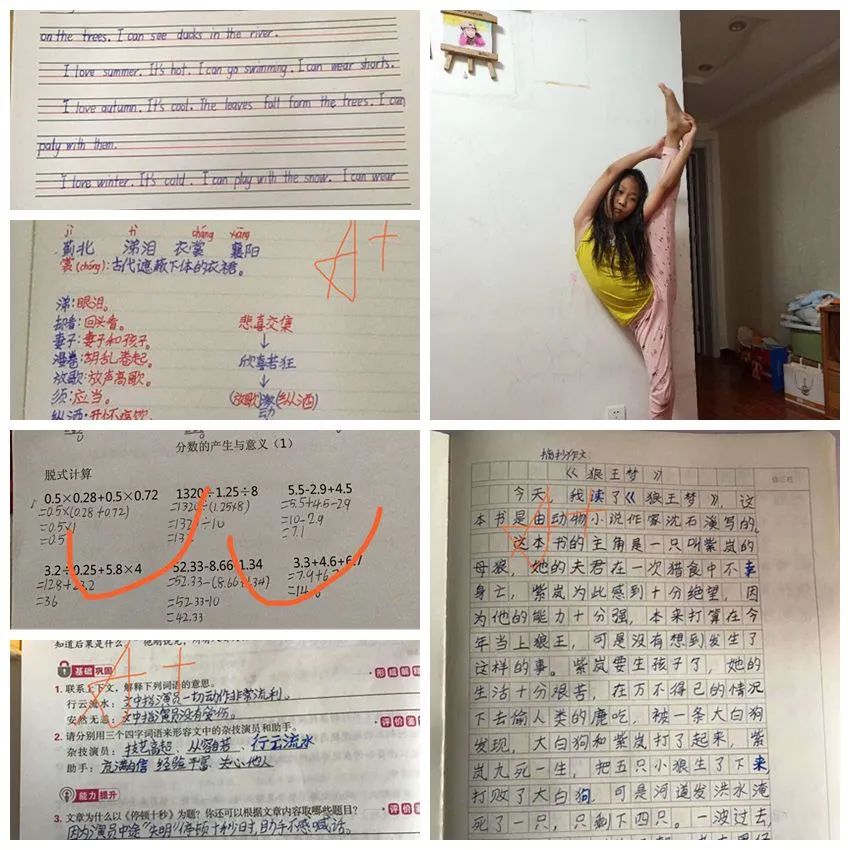 on the trees. I can see ducks in the river.
I love summer. It's hot. I can go swimming. I can wear shorts.
I love autumn. It's cool. The leaves fall form the trees. I can
paly with them.
I love winter. It's cold. I can play with the snow. I can wear
jì tì cháng xiāng
蓟北 涕泪 衣裳 襄阳
裳(cháng):古代遮蔽下体的衣裙。
A+
涕:眼泪。
却看:回头看。
悲喜交集
妻子:妻子和孩子。
↓
漫卷:胡乱卷起。
欣喜若狂
放歌:放声高歌。
↓
须:应当。
(放歌)激动(纵酒)
纵酒:开怀痛饮
分数的产生与意义(1)
脱式计算
0.5×0.28+0.5×0.72 1320÷1.25÷8 5.5-2.9+4.5
=0.5×(0.28+0.72) =1320÷(1.25×8) =5.5+4.5-2.9
=0.5×1 =1320÷10 =10-2.9
=0.5 =132 =7.1
3.2÷0.25+5.8×4 52.33-8.66-1.34 3.3+4.6+6.7
=12.8+23.2 =52.33-(8.66+1.34) =7.9+6.7
=36 =52.33-10 =14.6
=42.33
知道后果是什么
A+
基础巩固
1. 联系上下文，解释下列词语的意思。
行云流水：文中指演员一切动作非常流利。
安然无恙：文中指演员没有受伤。
2. 请分别用三个四字词语来形容文中的杂技演员和助手。
杂技演员：技艺高超、从容自若、行云流水
助手：充满自信 经验丰富 关心他人
能力提升
3. 文章为什么以《停顿十秒》为题？你还可以根据文章内容取哪些题目？
因为演员中途“失明”停顿十秒时,助手不感喊话。
摘抄作文
《狼王梦》
今天，我读了《狼王梦》，这
本书是由动物小说作家沈石溪写的。
A+
这本书的主角是一只叫紫岚的
母狼，她的夫君在一次猎食中不幸
身亡，紫岚为此感到十分绝望，因
为他的能力十分强，本来打算在今
年当上狼王，可是没有想到发生了
这样的事。紫岚要生孩子了，她的
生活十分艰苦，在万不得已的情况
下去偷人类的鹿吃，被一条大白狗
发现，大白狗和紫岚打了起来，紫
岚九死一生，把五只小狼生了下来,
打败了大白狗，可是河道发洪水淹
死了一只，只剩下四只。一波过去,